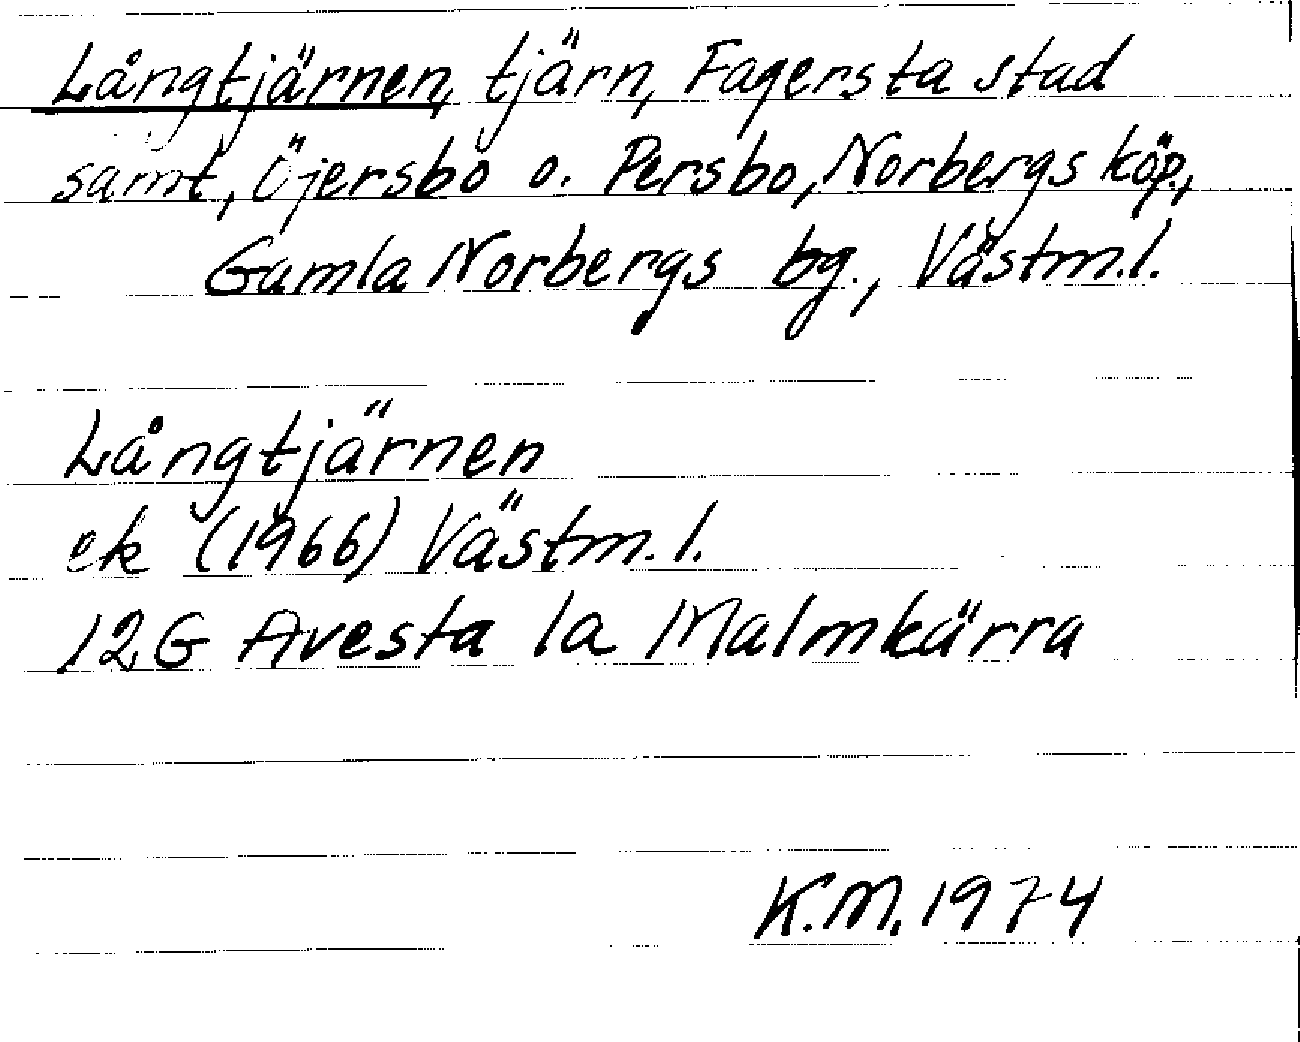 Långtjärnen, tjärn, Fagersta stad
samt, Öjersbo o. Persbo, Norbergs köp.,
Gamla Norbergs bg., Västm.l.
Långtjärnen
ek (1966) Västm.l.
12G Avesta 1a Malmkärra
K.M. 1974